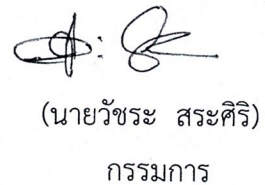 (นายวัชระ สระศิริ)
กรรมการ